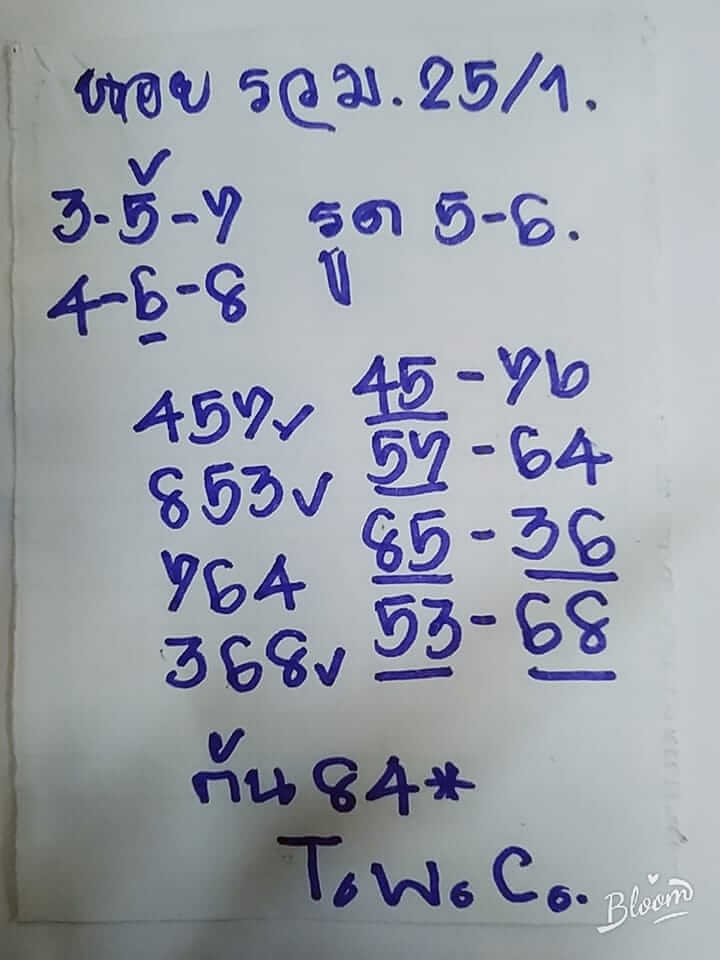 หอย รวม. 25/1.
3-5-7 รูด 5-6.
4-6-8
457✓ 45-76
853✓ 57-64
764 85-36
368✓ 53-68
กัน 84*
T.W.C.
Bloom